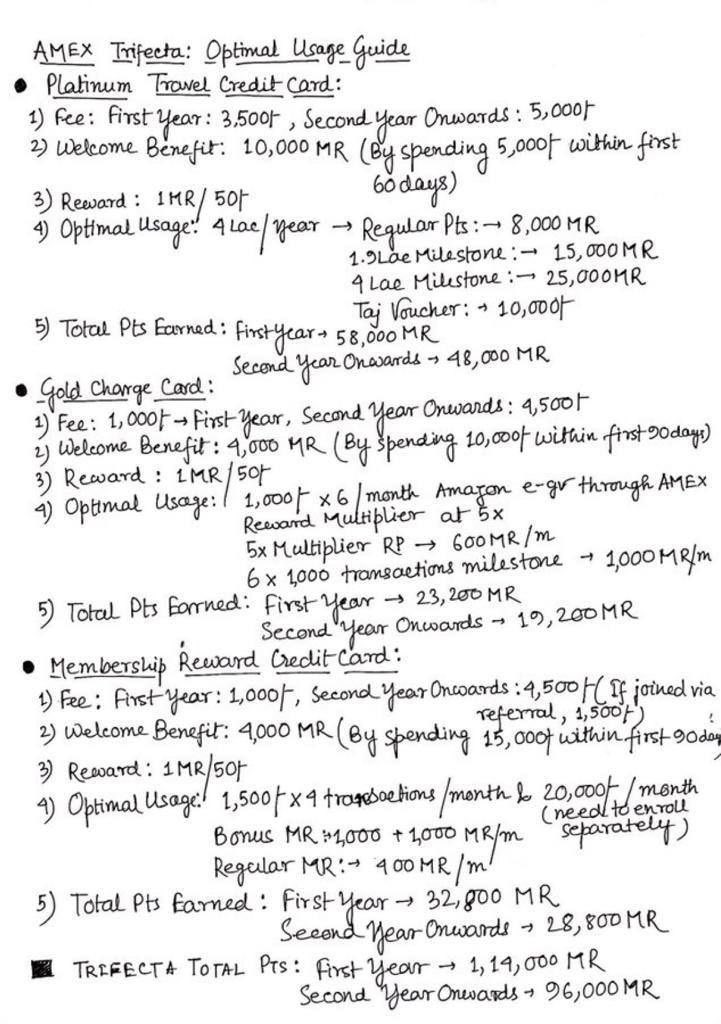 AMEX Trifecta: Optimal Usage Guide
• Platinum Travel Credit Card:
1) Fee: First Year: 3,500/-, Second Year Onwards: 5,000/-
2) Welcome Benefit: 10,000 MR (By spending 5,000/- within first
60 days)
3) Reward: 1MR/50/-
4) Optimal Usage: 4 Lac/Year → Regular Pts:→ 8,000 MR
1.9 Lac Milestone:→ 15,000 MR
4 Lac Milestone:→ 25,000 MR
Taj Voucher:→ 10,000/-
5) Total Pts Earned: First year→ 58,000 MR
Second Year Onwards→ 48,000 MR
• Gold Charge Card:
1) Fee: 1,000/- → First Year, Second Year Onwards: 4,500/-
2) Welcome Benefit: 4,000 MR (By spending 10,000/- within first 90 days)
3) Reward: 1MR/50/-
4) Optimal Usage: 1,000/- x 6/month Amazon e-gv through AMEX
Reward Multiplier at 5x
5x Multiplier RP → 600 MR/m
6 x 1,000 transactions milestone → 1,000 MR/m
5) Total Pts Earned: First Year → 23,200 MR
Second Year Onwards → 19,200 MR
• Membership Reward Credit Card:
1) Fee: First Year: 1,000/-, Second Year Onwards: 4,500/- (If joined via
referral, 1,500/-)
2) Welcome Benefit: 4,000 MR (By spending 15,000/- within first 90 days
3) Reward: 1MR/50/-
4) Optimal Usage: 1,500/- x 4 transactions/month & 20,000/-/month
(need to enroll
Bonus MR:→ 1,000 + 1,000 MR/m separately)
Regular MR:→ 400 MR/m
5) Total Pts Earned: First Year → 32,800 MR
Second Year Onwards → 28,800 MR
■ TRIFECTA TOTAL Pts: First Year → 1,14,000 MR
Second Year Onwards → 96,000 MR